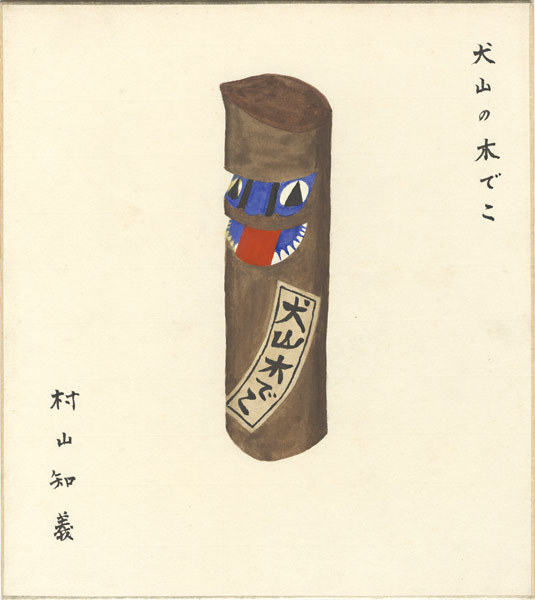 犬山の木でこ
犬山木でこ
村山知義